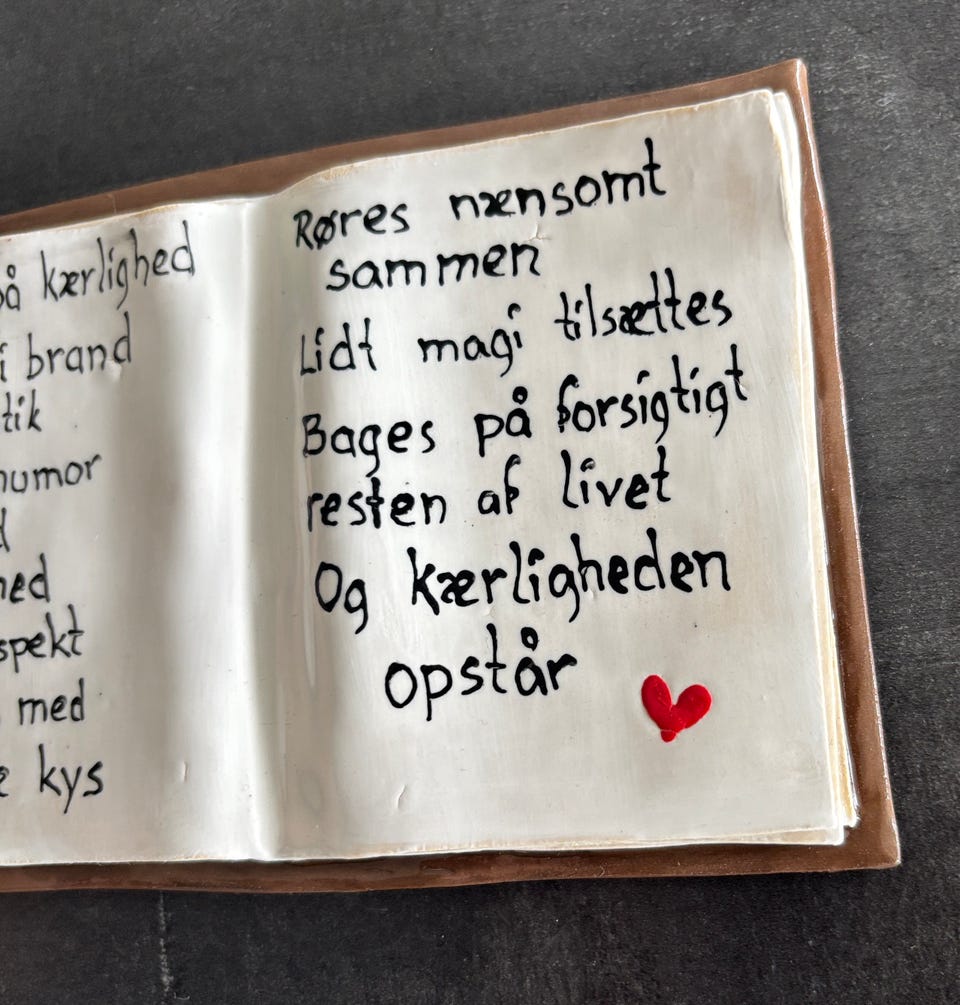 på kærlighed
i brand
humor
spekt
med
kys
Røres nænsomt
sammen
Lidt magi tilsættes
Bages på forsigtigt
resten af livet
Og kærligheden
opstår